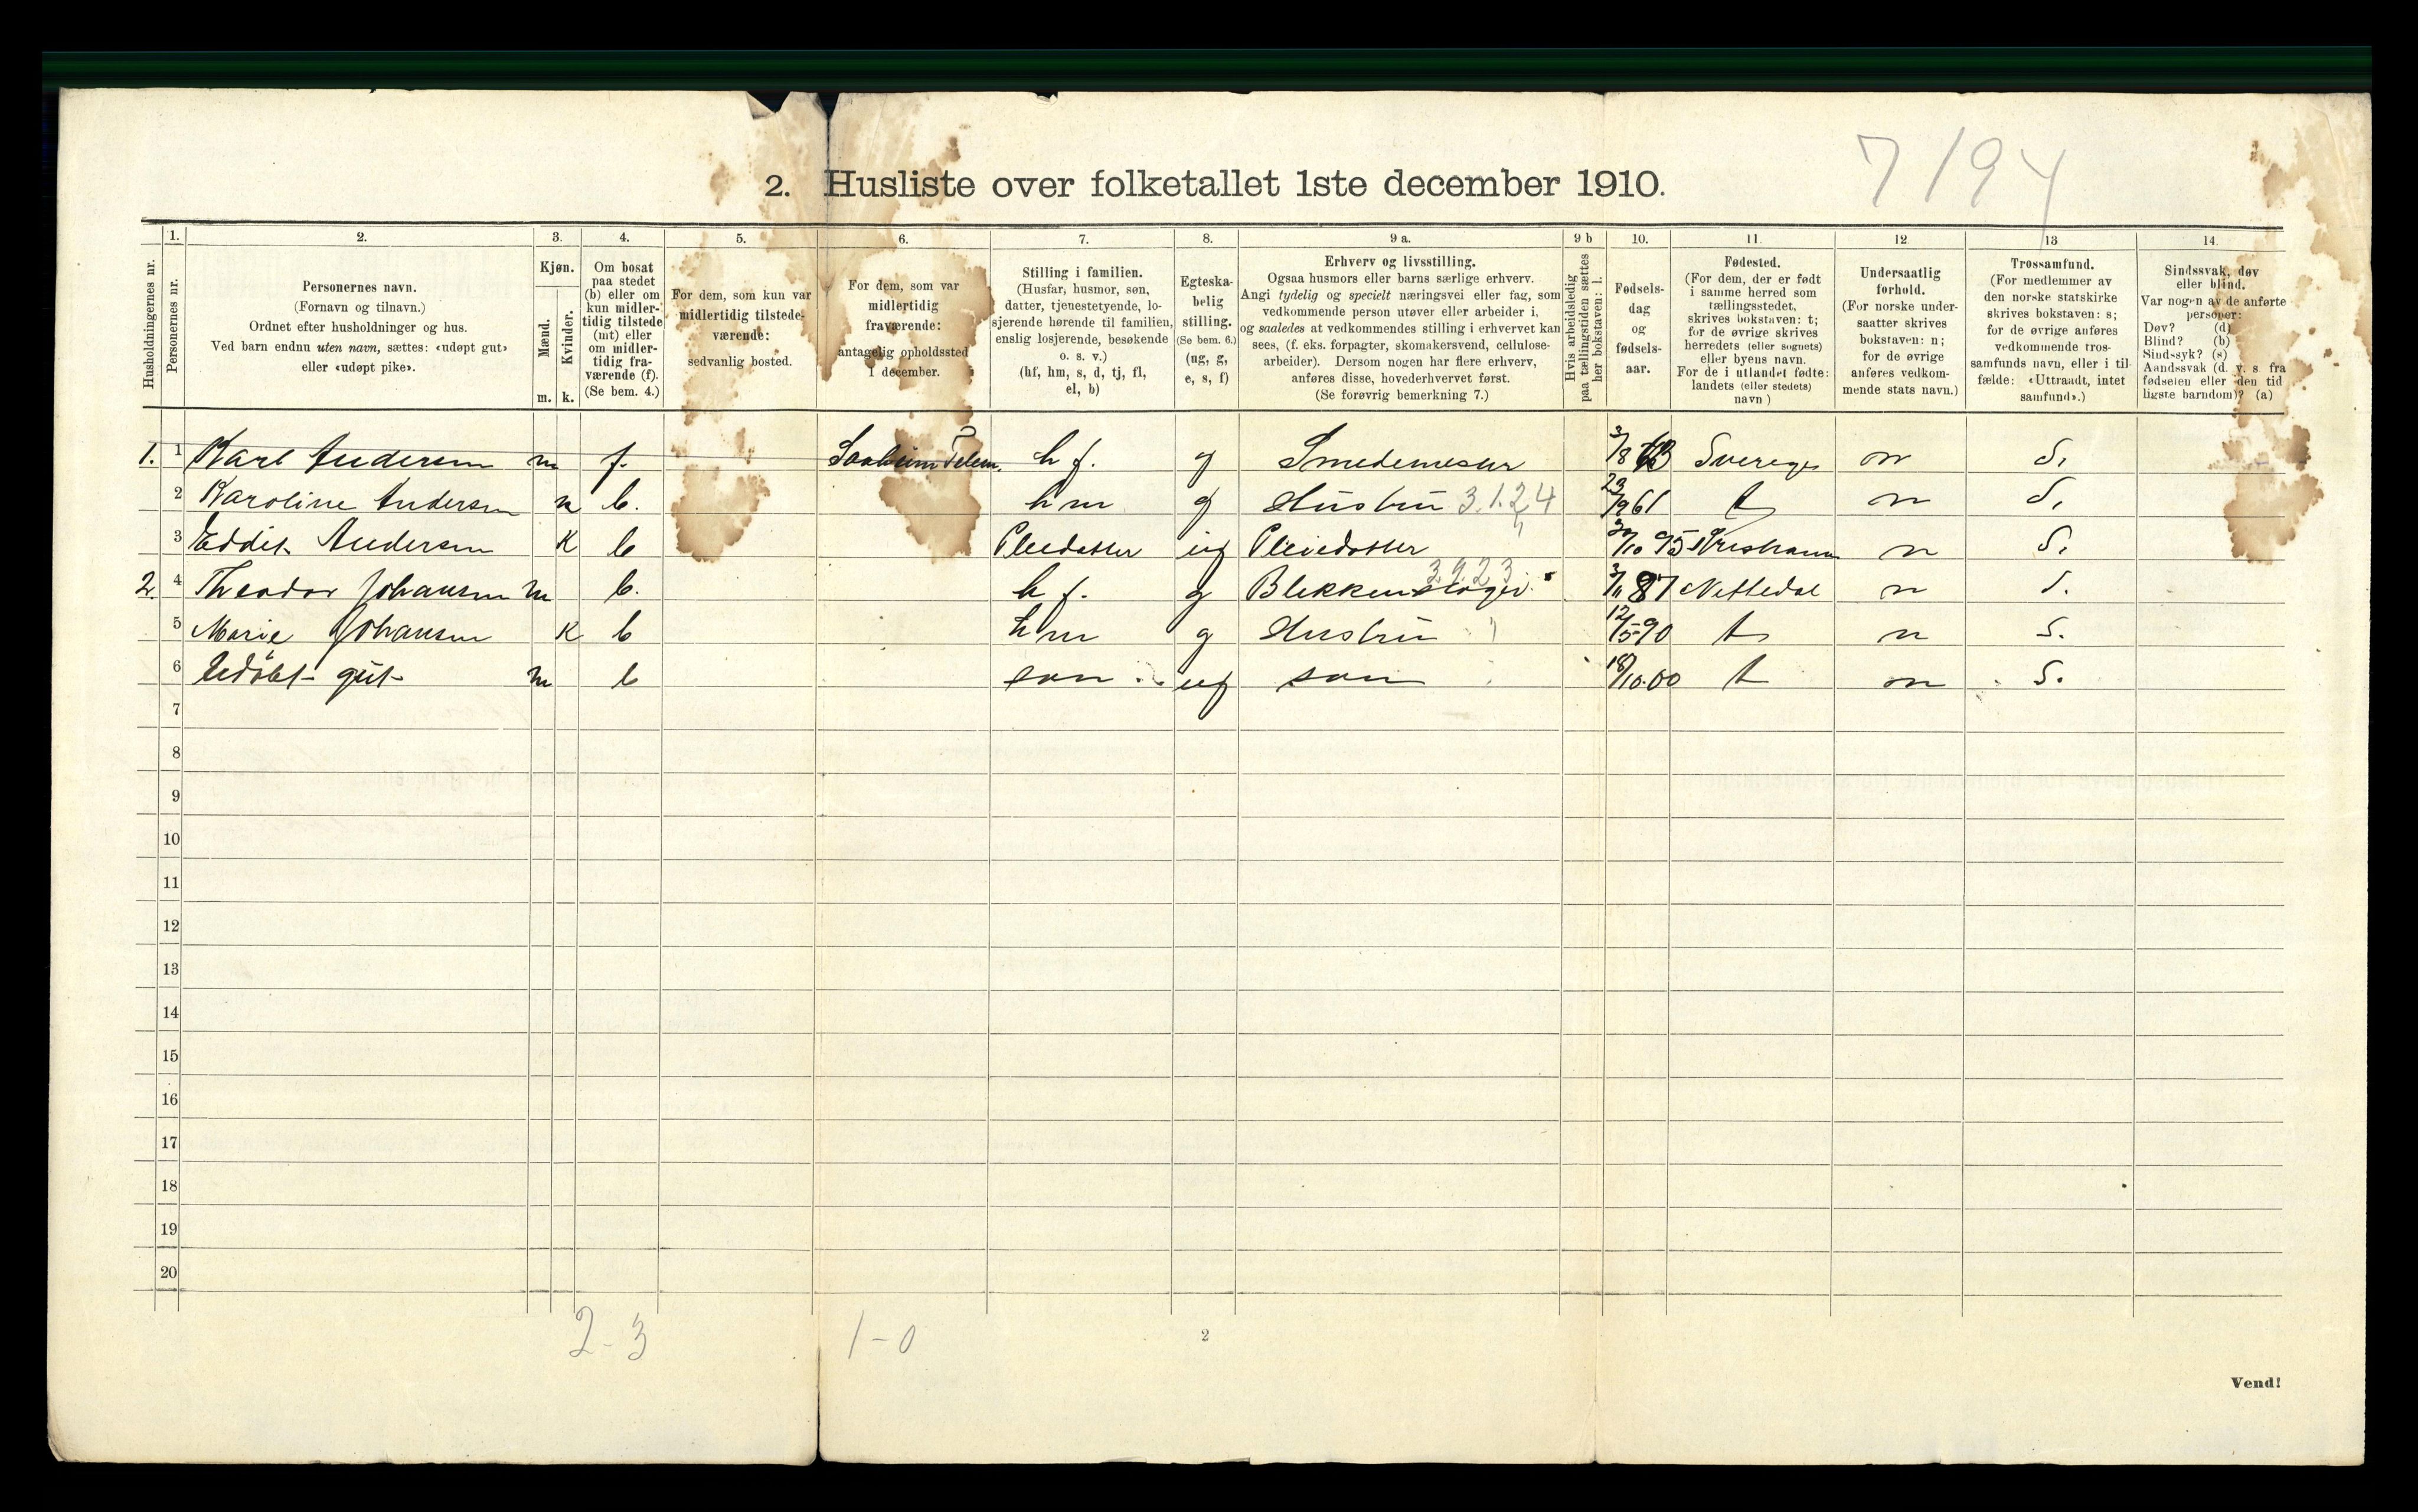 7194
2. Husliste over folketallet 1ste december 1910.
Husholdningernes nr.
1.
Personernes nr.
2.
Personernes navn.
(Fornavn og tilnavn.)
Ordnet efter husholdninger og hus.
Ved barn endnu uten navn, sættes: «udøpt gut»
eller «udøpt pike».
3.
Kjøn.
Mænd.
Kvinder.
m. k.
4.
Om bosat
paa stedet
(b) eller om
kun midler-
tidig tilstede
(mt) eller
om midler-
tidig fra-
værende (f).
(Se bem. 4.)
5.
For dem, som kun var
midlertidig tilstede-
værende:
sedvanlig bosted.
6.
For dem, som var
midlertidig
fraværende:
antagelig opholdssted
1 december.
7.
Stilling i familien.
(Husfar, husmor, søn,
datter, tjenestetyende, lo-
sjerende hørende til familien,
enslig losjerende, besøkende
o. s. v.)
(hf, hm, s, d, tj, fl,
el, b)
8.
Egteska-
belig
stilling.
(Se bem. 6.)
(ug, g,
e, s, f)
9 a.
Erhverv og livsstilling.
Ogsaa husmors eller barns særlige erhverv.
Angi tydelig og specielt næringsvei eller fag, som
vedkommende person utøver eller arbeider i,
og saaledes at vedkommendes stilling i erhvervet kan
sees, (f. eks. forpagter, skomakersvend, cellulose-
arbeider). Dersom nogen har flere erhverv,
anføres disse, hovederhvervet først.
(Se forøvrig bemerkning 7.)
9 b
Hvis arbeidsledig
paa tællingstiden sættes
her bokstaven: l.
10.
Fødsels-
dag
og
fødsels-
aar.
11.
Fødested.
(For dem, der er født
i samme herred som
tællingsstedet,
skrives bokstaven: t;
for de øvrige skrives
herredets (eller sognets)
eller byens navn.
For de i utlandet fødte:
landets (eller stedets)
navn)
12
Undersaatlig
forhold.
(For norske under-
saatter skrives
bokstaven: n;
for de øvrige
anføres vedkom-
mende stats navn.)
13
Trossamfund.
(For medlemmer av
den norske statskirke
skrives bokstaven: s;
for de øvrige anføres
vedkommende tros-
samfunds navn, eller i til
fælde: «Uttraadt, intet
samfund».)
14.
Sindssvak, døv
eller blind.
Var nogen av de anførte
personer:
Døv? (d)
Blind? (b)
Sindssyk? (s)
Aandssvak (d. v. s. fra
fødselen eller den tid
ligste barndom)? (a)
1. 1 Karl Andersen m f. Saaheim Telem. hf. g Smedemester 3/8 63 Sverige n S.
2 Karoline Andersen k b. hm g Hustru 3.1.24 23/9 61 t n S.
3 Eddit Andersen K b Pleiedatter ug Pleiedatter 30/10 95 Kristiania n S.
2. 4 Theodor Johansen m b. hf. g Blikkenslager 3.9.23 3/11 87 Nittedal n S.
5 Marie Johansen K b hm g Hustru 12/5-90 t n S.
6 Udöbt gut m b søn ug søn 18/10.00 t n S.
7
8
9
10
11
12
13
14
15
16
17
18
19
20
2-3 1-0
2
Vend!